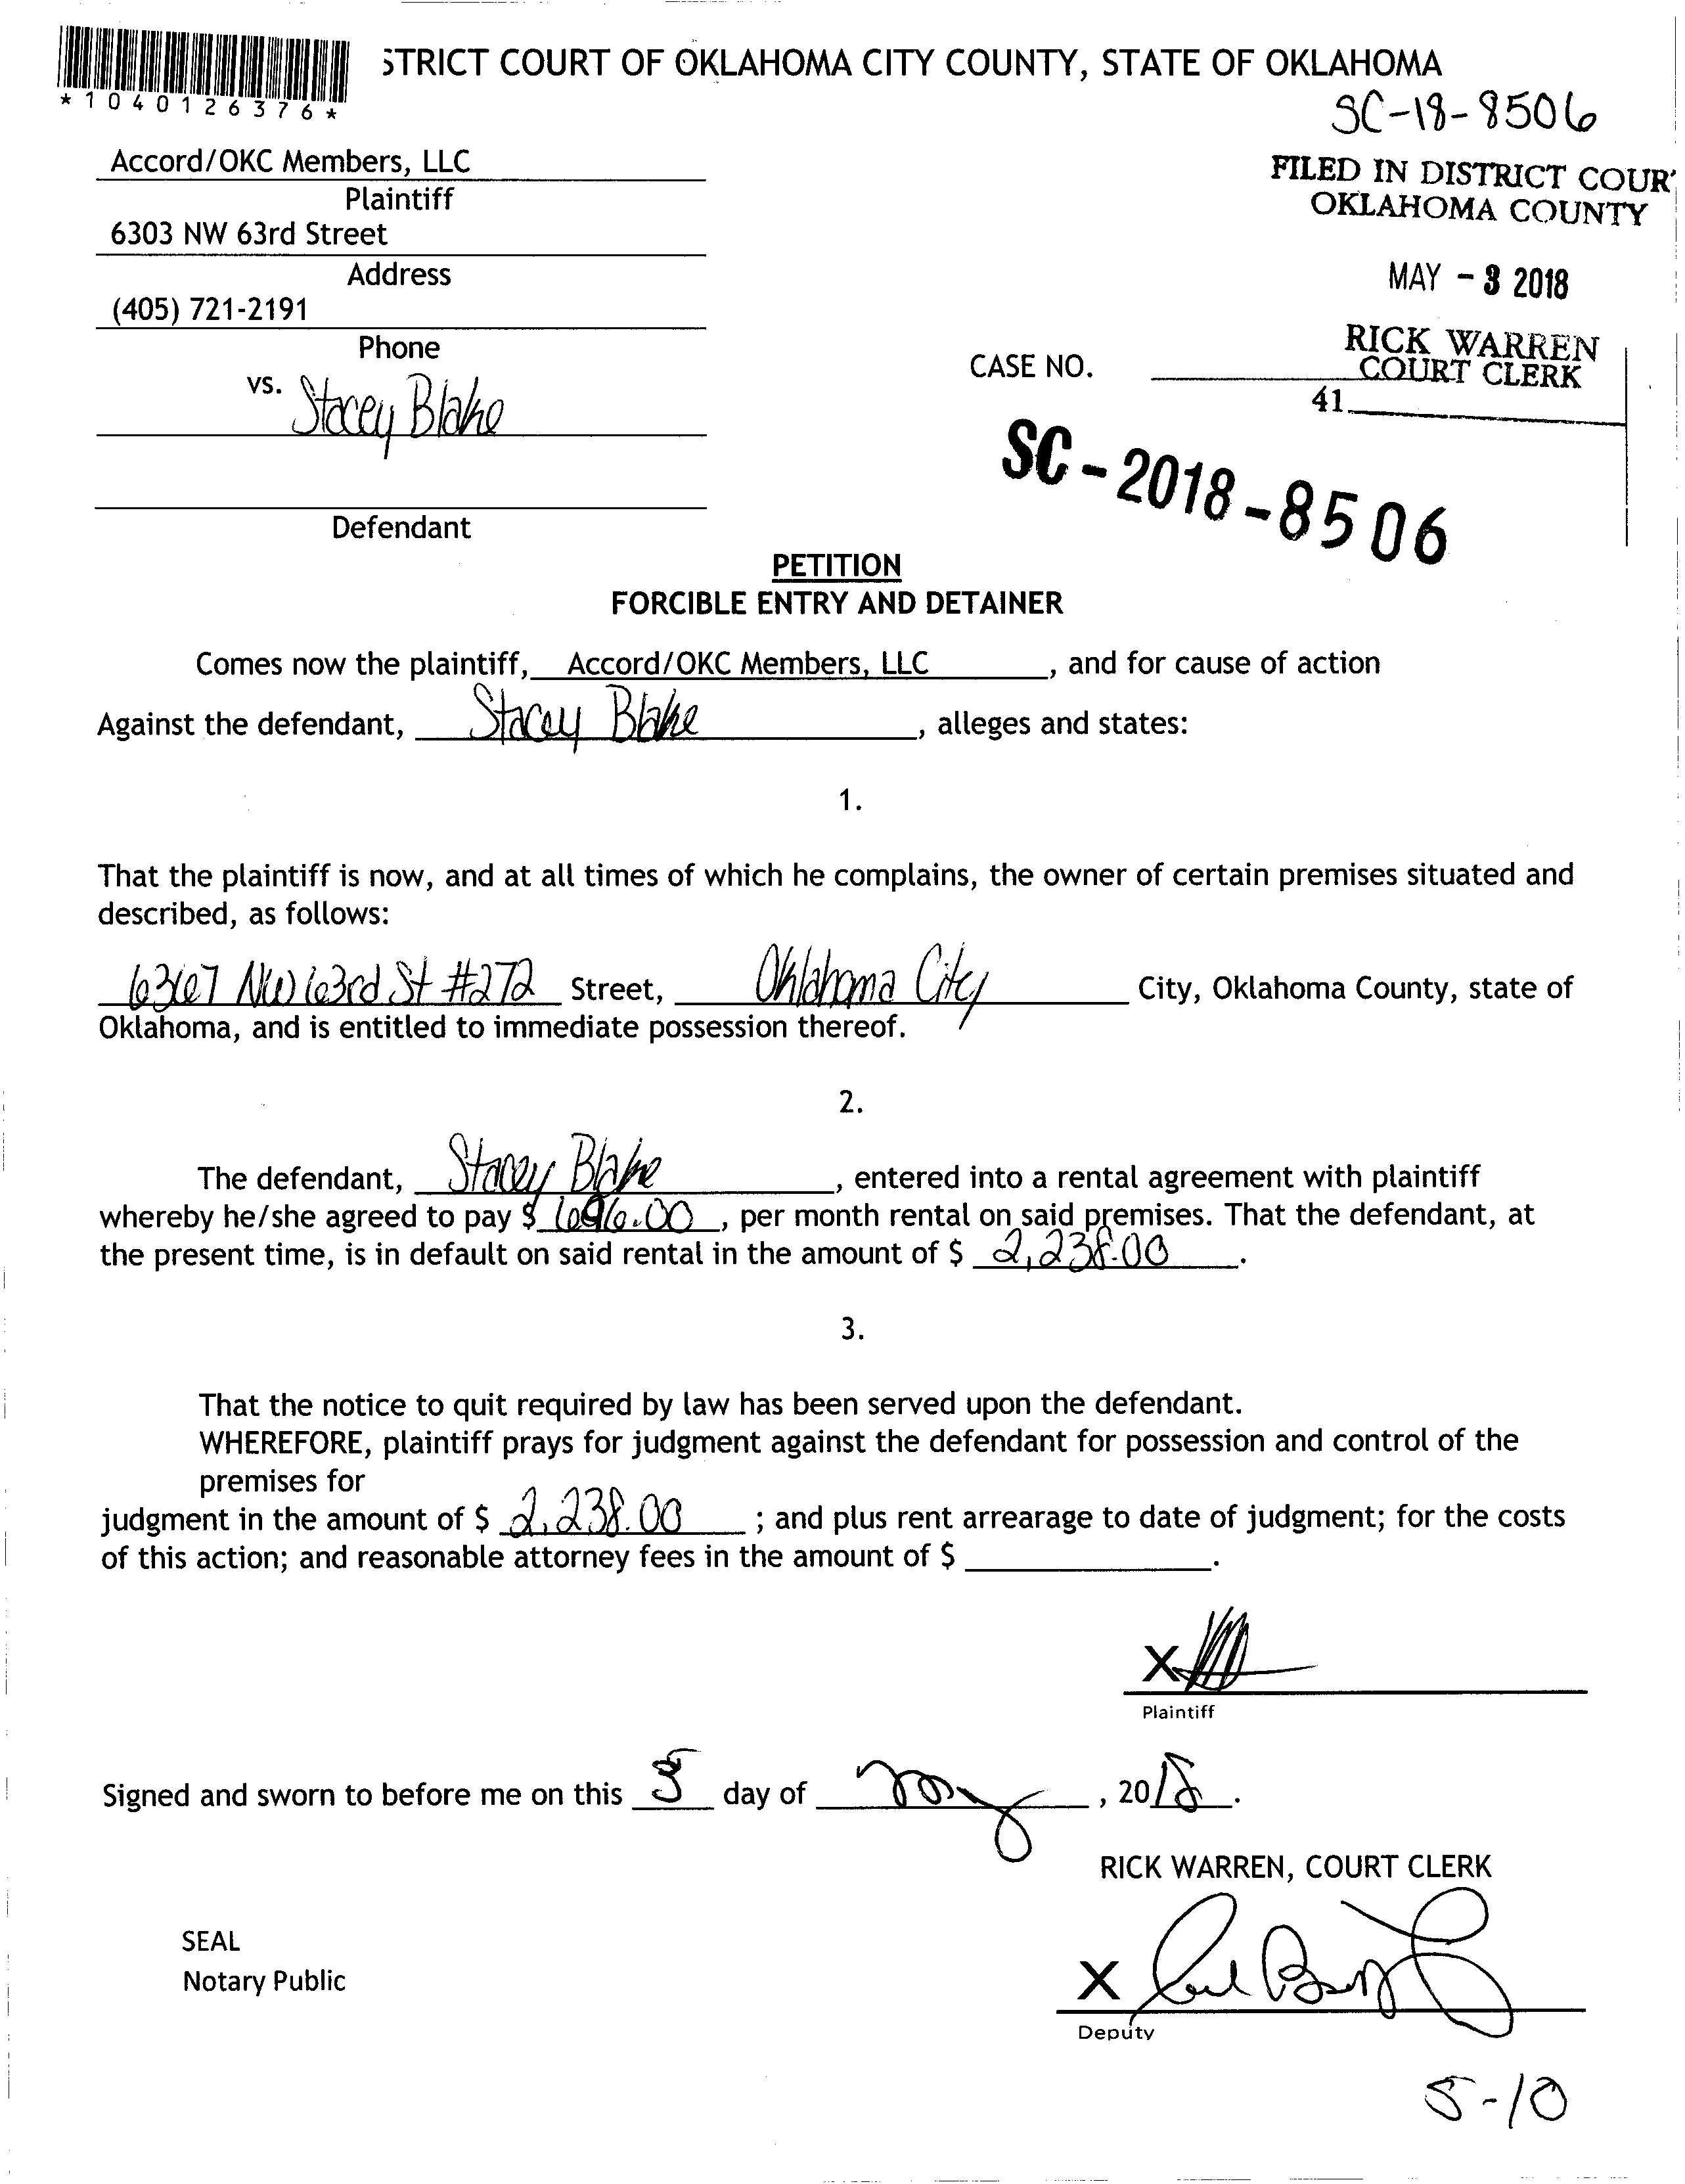 STRICT COURT OF OKLAHOMA CITY COUNTY, STATE OF OKLAHOMA
*1040126376*
SC-18-8506
Accord/OKC Members, LLC
Plaintiff
6303 NW 63rd Street
Address
(405) 721-2191
Phone
vs. Stacey Blake
Defendant
FILED IN DISTRICT COUR
OKLAHOMA COUNTY
MAY - 3 2018
RICK WARREN
COURT CLERK
41
CASE NO.
SC-2018-8506
PETITION
FORCIBLE ENTRY AND DETAINER
Comes now the plaintiff, Accord/OKC Members, LLC, and for cause of action
Against the defendant, Stacey Blake, alleges and states:
1.
That the plaintiff is now, and at all times of which he complains, the owner of certain premises situated and
described, as follows:
6367 NW 63rd St #272 Street, Oklahoma City City, Oklahoma County, state of
Oklahoma, and is entitled to immediate possession thereof.
2.
The defendant, Stacey Blake, entered into a rental agreement with plaintiff
whereby he/she agreed to pay $ 696.00, per month rental on said premises. That the defendant, at
the present time, is in default on said rental in the amount of $ 2,238.00.
3.
That the notice to quit required by law has been served upon the defendant.
WHEREFORE, plaintiff prays for judgment against the defendant for possession and control of the
premises for
judgment in the amount of $ 2,238.00; and plus rent arrearage to date of judgment; for the costs
of this action; and reasonable attorney fees in the amount of $ .
X
Plaintiff
Signed and sworn to before me on this 3 day of May, 2018.
RICK WARREN, COURT CLERK
SEAL
Notary Public
X
Deputy
5-10